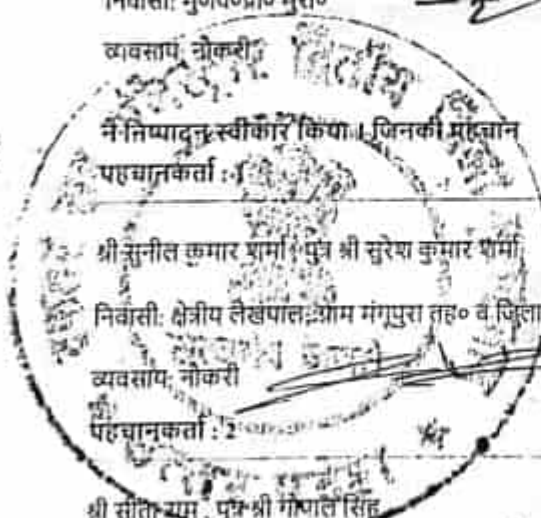 निवासी: मु०वि०प्रा० मुरा०
व्यवसाय: नौकरी
ने निष्पादन स्वीकार किया । जिनकी पहचान
पहचानकर्ता : 1
श्री सुनील कुमार शर्मा , पुत्र श्री सुरेश कुमार शर्मा
निवासी: क्षेत्रीय लेखपाल, ग्राम मंगूपुरा तह० व जिला
व्यवसाय: नौकरी
पहचानकर्ता : 2
श्री सीता राम , पुत्र श्री गोपाल सिंह